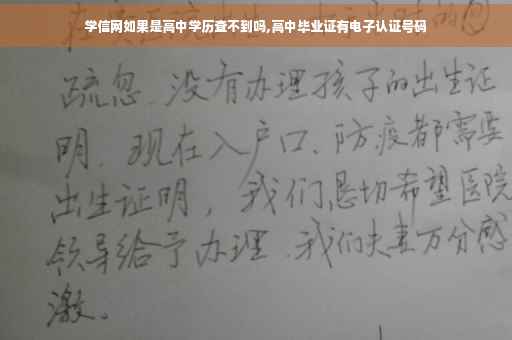 学信网如果是高中学历查不到吗,高中毕业证有电子认证号码
疏忽.没有办理孩子的出生证
明.现在入户口、防疫都需要
出生证明，我们恳切希望医院
领导给予办理.我们夫妻万分感
激。